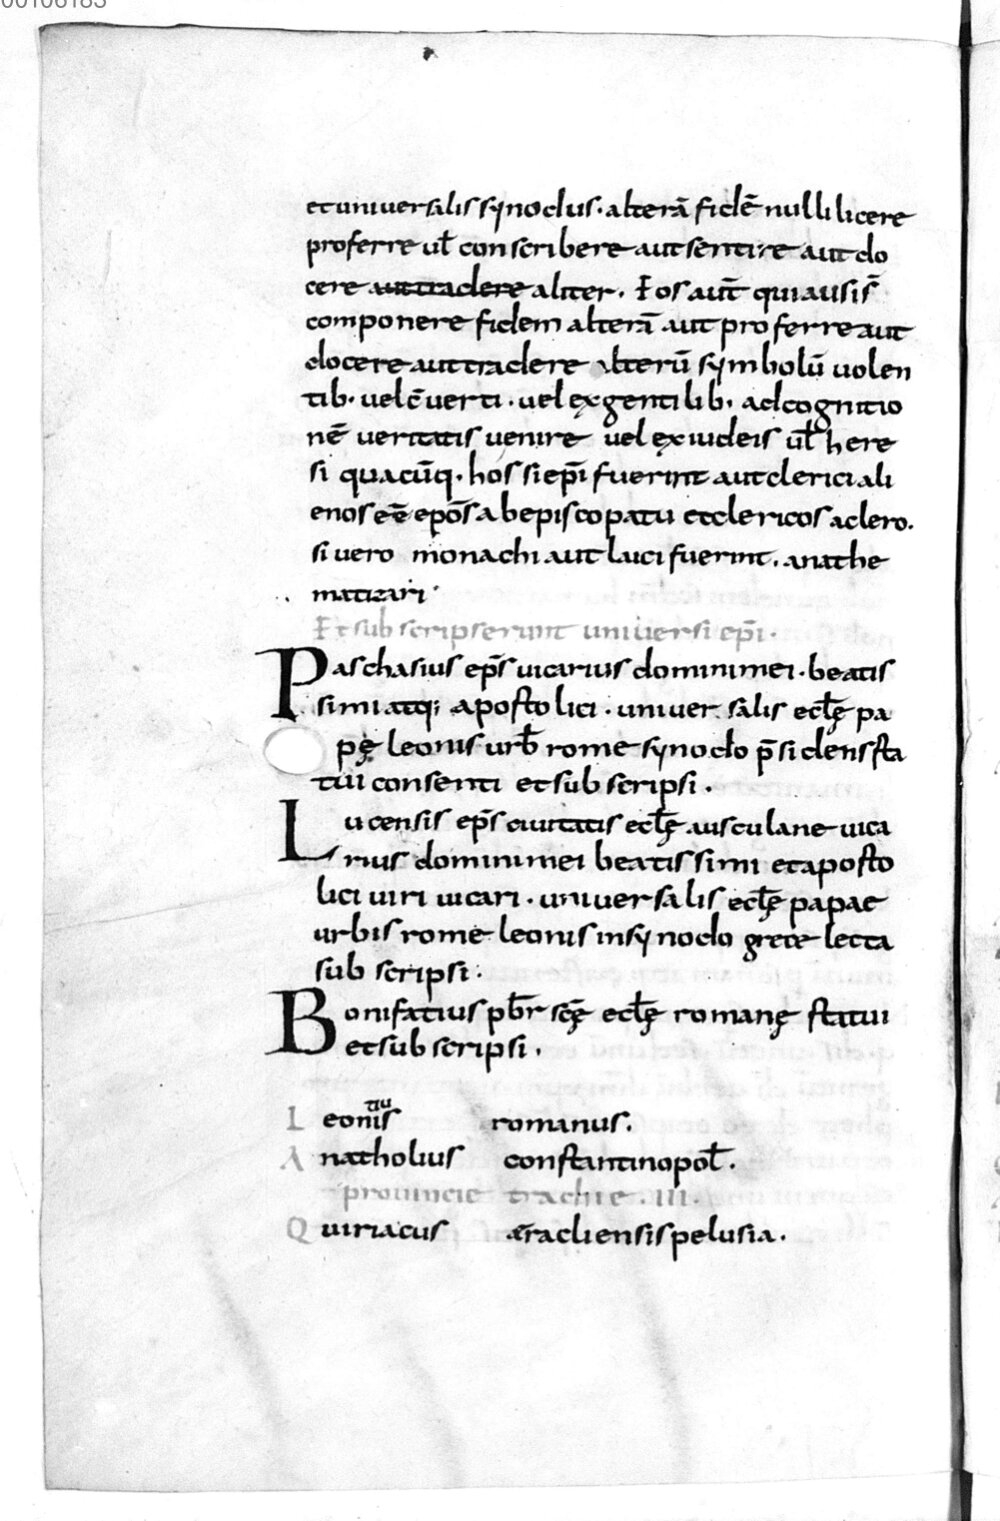 00106183
et universalis synodus· alterā fidē nulli licere
proferre ul̄ conscribere aut sentire aut do
cere aut tradere aliter. Eos aūt qui ausi s̄
componere fidem alterā aut proferre aut
docere aut tradere alterū symbolū uolen
tib· uel c̄uerti· uel ex gentilib· ad cognitio
nē ueritatis uenire uel ex iudeis ul̄ here
si quacūq· hos si epī fuerint aut clerici ali
enos eē epōs ab episcopatu et clericos a clero.
si uero monachi aut laici fuerint. anathe
matizari·
Et subscripserunt uniuersi epī·
Paschasius ep̄s uicarius domini mei· beatis
simi atq; apostolici· uniuersalis eccl̄ę pa
pę leonis urb̄ rome synodo p̄sidens sta
tui consenti et subscripsi·
Lucensis ep̄s ciuitatis eccl̄ę ausculane uica
rius domini mei beatissimi et aposto
lici uiri uicari· uniuersalis eccl̄ę papae
urbis rome leonis in synodo grece lecta
subscripsi·
Bonifatius pb̄r sc̄ę eccl̄ę romanę statui
et subscripsi.
tiu
Leonis romanus.
Anatholius constantinopol̄.
prouincie trachie. III.
Quiriacus ēracliensis pelusia.